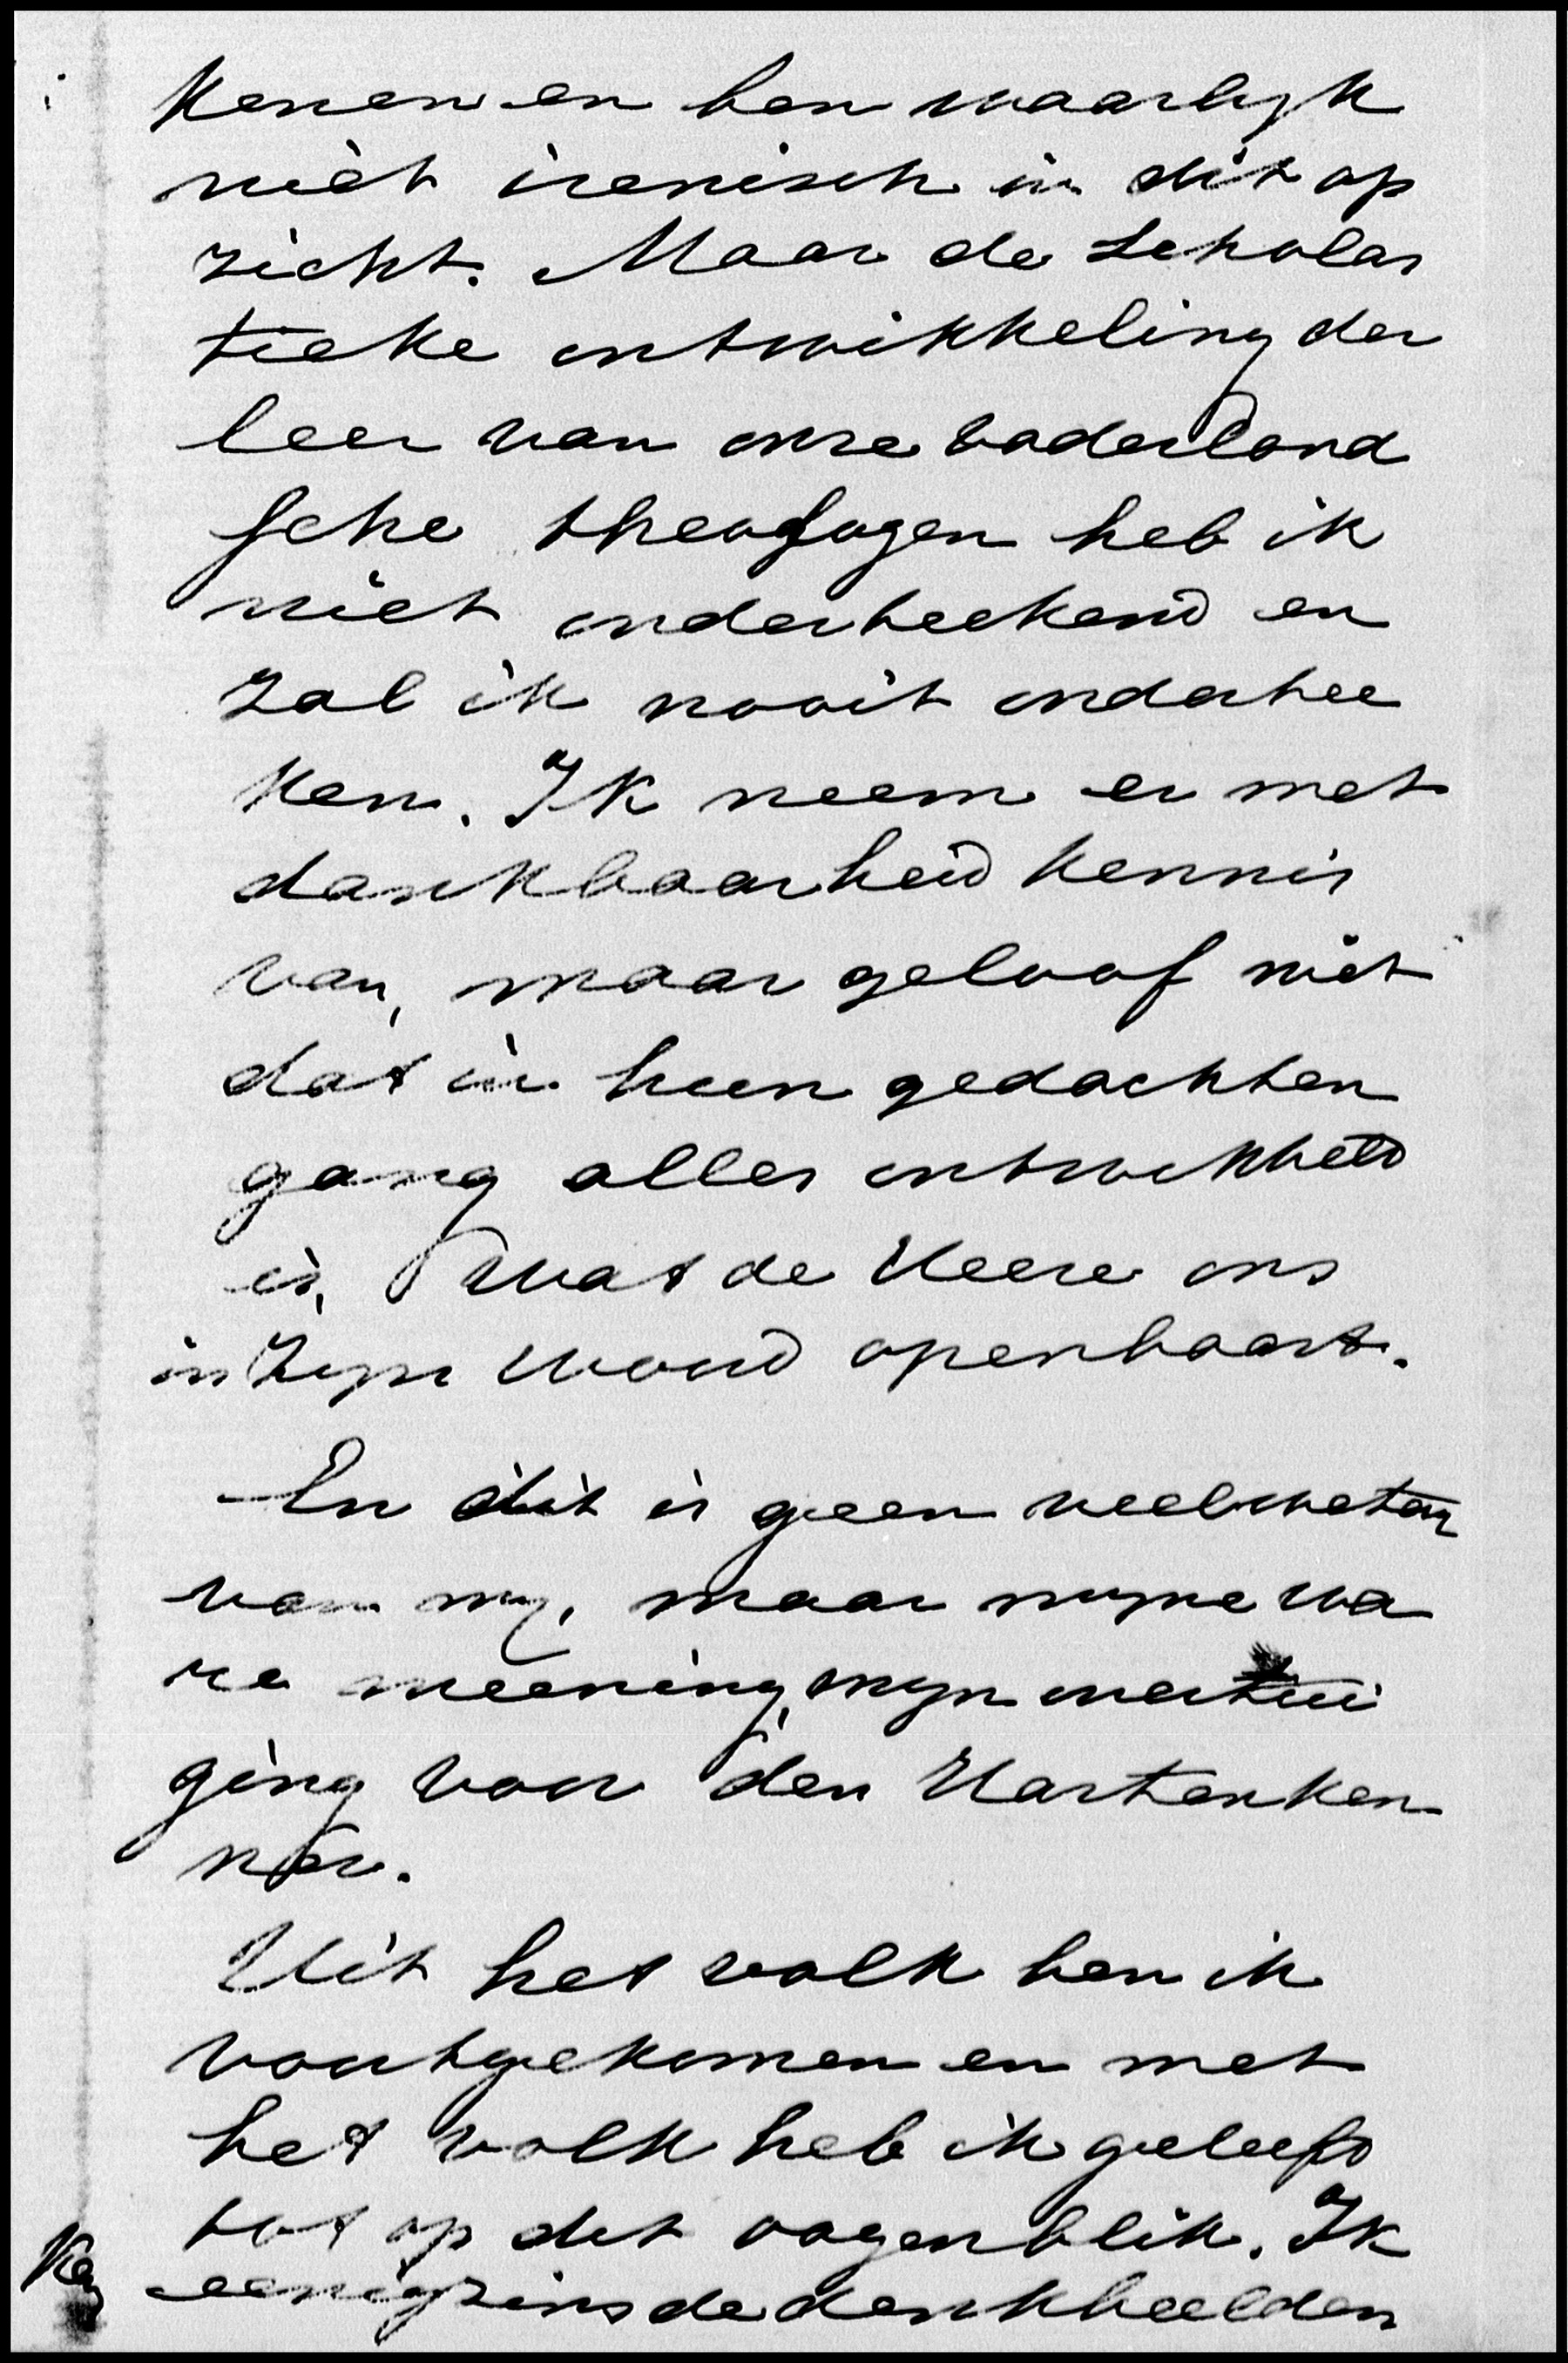 kenen en ben waarlyk
niet irenisch in dit op
zicht. Maar de Scholas
tieke ontwikkeling der
leer van onze vaderland
sche theologen heb ik
niet onderteekend en
zal ik nooit ondertee
ken. Ik neem er met
dankbaarheid kennis
van, maar geloof niet
dat in hun gedachten
gang alles ontwikkeld
is, wat de Heere ons
in Zyn Woord openbaart.
En dit is geen veelweten
van my, maar myne wa
re meening, myn overtui
ging voor den Hartenken
ner.
Uit het volk ben ik
voortgekomen en met
het volk heb ik geleefd
tot op dit oogenblik. Ik
ken eenigzins de denkbeelden